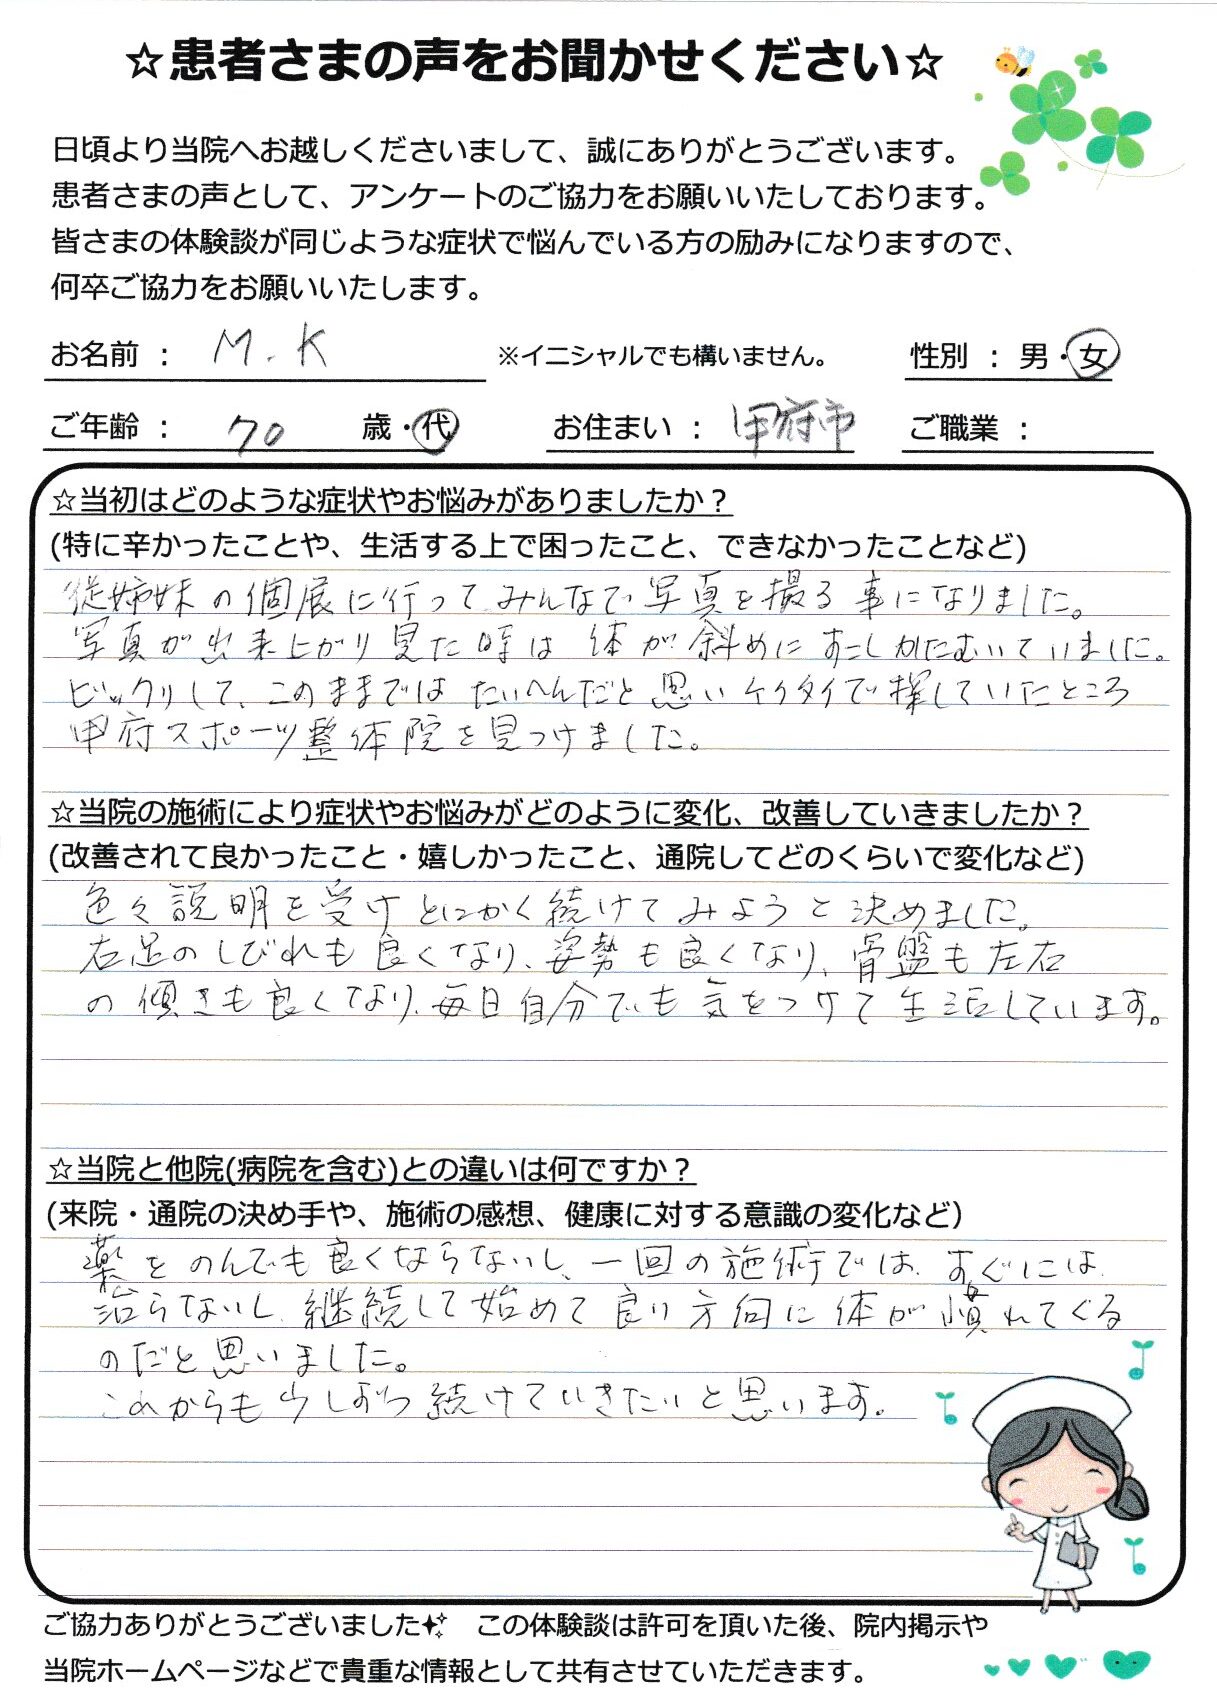 ☆患者さまの声をお聞かせください☆
日頃より当院へお越しくださいまして、誠にありがとうございます。
患者さまの声として、アンケートのご協力をお願いいたしております。
皆さまの体験談が同じような症状で悩んでいる方の励みになりますので、
何卒ご協力をお願いいたします。
お名前 : M.K ※イニシャルでも構いません。 性別 : 男・女
ご年齢 : 70 歳・代 お住まい : 甲府市 ご職業 :
☆当初はどのような症状やお悩みがありましたか？
(特に辛かったことや、生活する上で困ったこと、できなかったことなど)
従姉妹の個展に行ってみんなで写真を撮る事になりました。
写真が出来上がり見た時は体が斜めにすこしかたむいていました。
ビックリして、このままではたいへんだと思いケイタイで探していたところ
甲府スポーツ整体院を見つけました。
☆当院の施術により症状やお悩みがどのように変化、改善していきましたか？
(改善されて良かったこと・嬉しかったこと、通院してどのくらいで変化など)
色々説明を受けとにかく続けてみようと決めました。
右足のしびれも良くなり、姿勢も良くなり、骨盤も左右
の傾きも良くなり、毎日自分でも気をつけて生活しています。
☆当院と他院(病院を含む)との違いは何ですか？
(来院・通院の決め手や、施術の感想、健康に対する意識の変化など)
薬をのんでも良くならないし、一回の施術では、すぐには、
治らないし、継続して始めて良い方向に体が慣れてくる
のだと思いました。
これからも少しずつ続けていきたいと思います。
ご協力ありがとうございました この体験談は許可を頂いた後、院内掲示や
当院ホームページなどで貴重な情報として共有させていただきます。